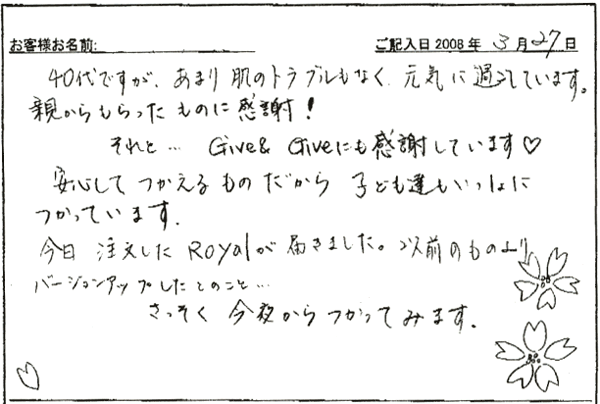 お客様お名前: ご記入日2008年 3月27日
40代ですが、あまり肌のトラブルもなく、元気に過ごしています。
親からもらったものに感謝!
それと… Give& Giveにも感謝しています♡
安心してつかえるものだから 子ども達もいっしょに
つかっています.
今日 注文した Royalが届きました。以前のものより
バージョンアップしたとのこと…
さっそく 今夜からつかってみます.